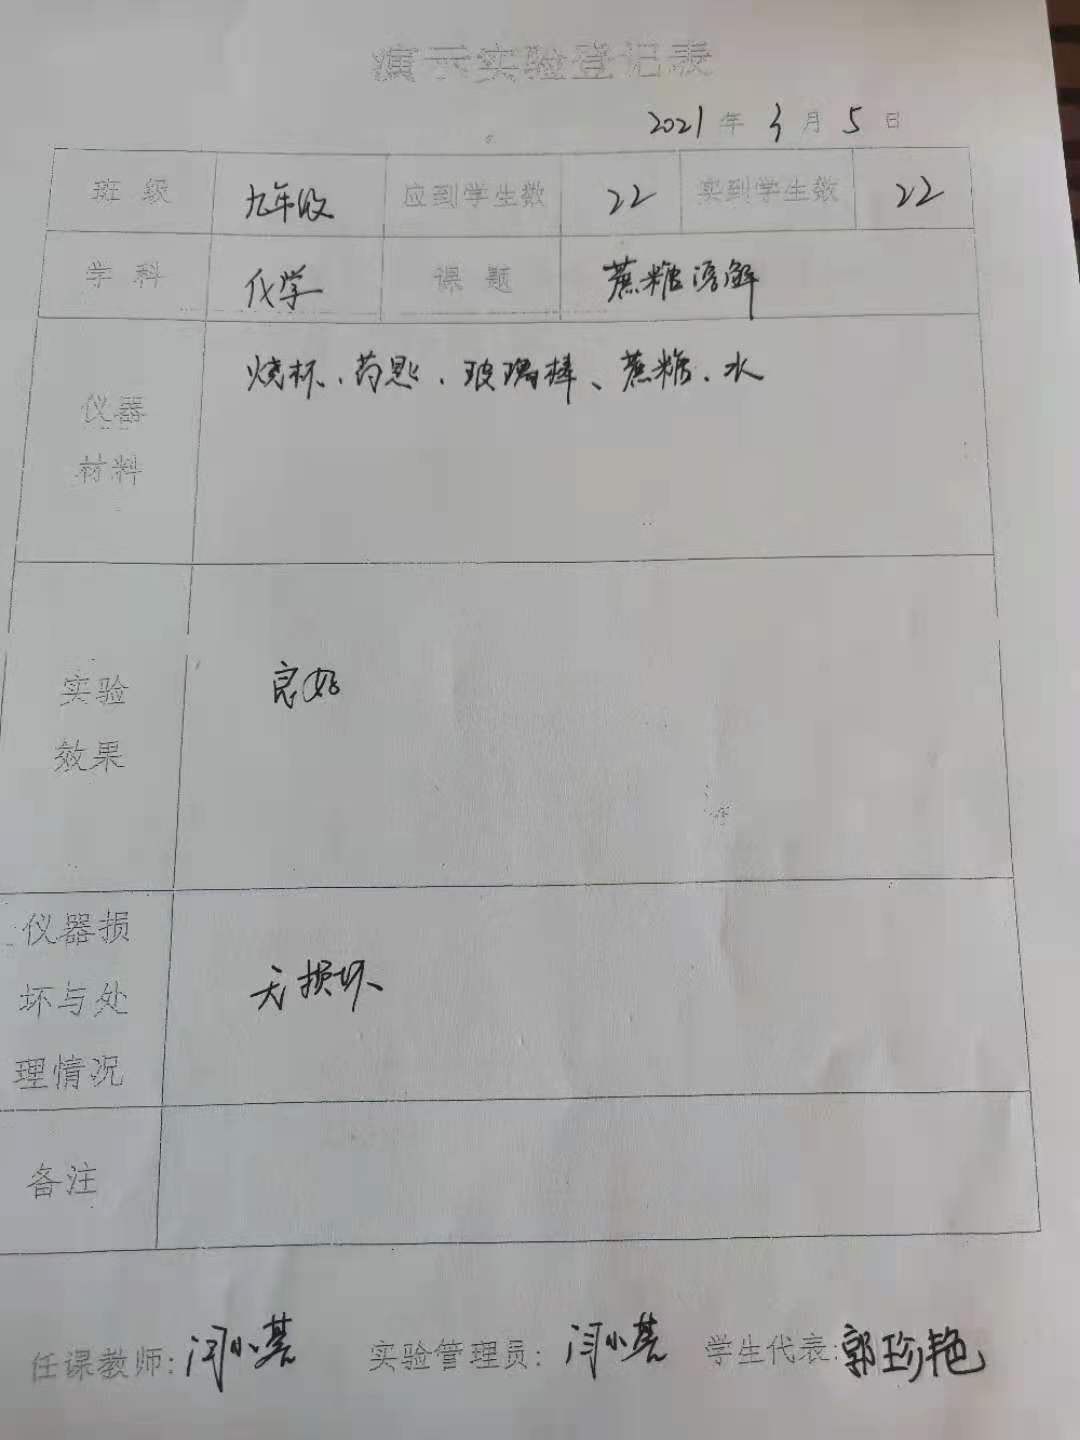 演示实验登记表
2021年3月5日
班级 九年级 应到学生数 22 实到学生数 22
学科 化学 课题 蔗糖溶解
仪器
材料
烧杯、药匙、玻璃棒、蔗糖、水
实验
效果
良好
仪器损
坏与处
理情况
无损坏
备注
任课教师: 闫小 实验管理员: 闫小 学生代表: 郭珍艳